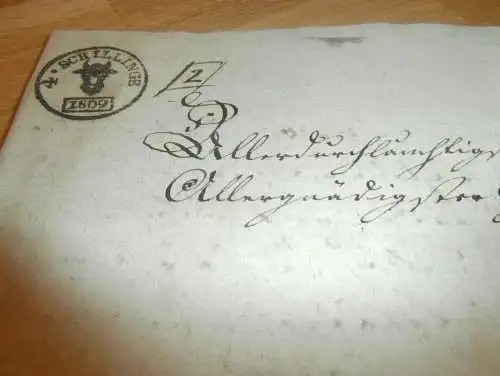 4. SCHILLINGE
1809
[2]
Allerdurchlauchtigs
Allergnädigster